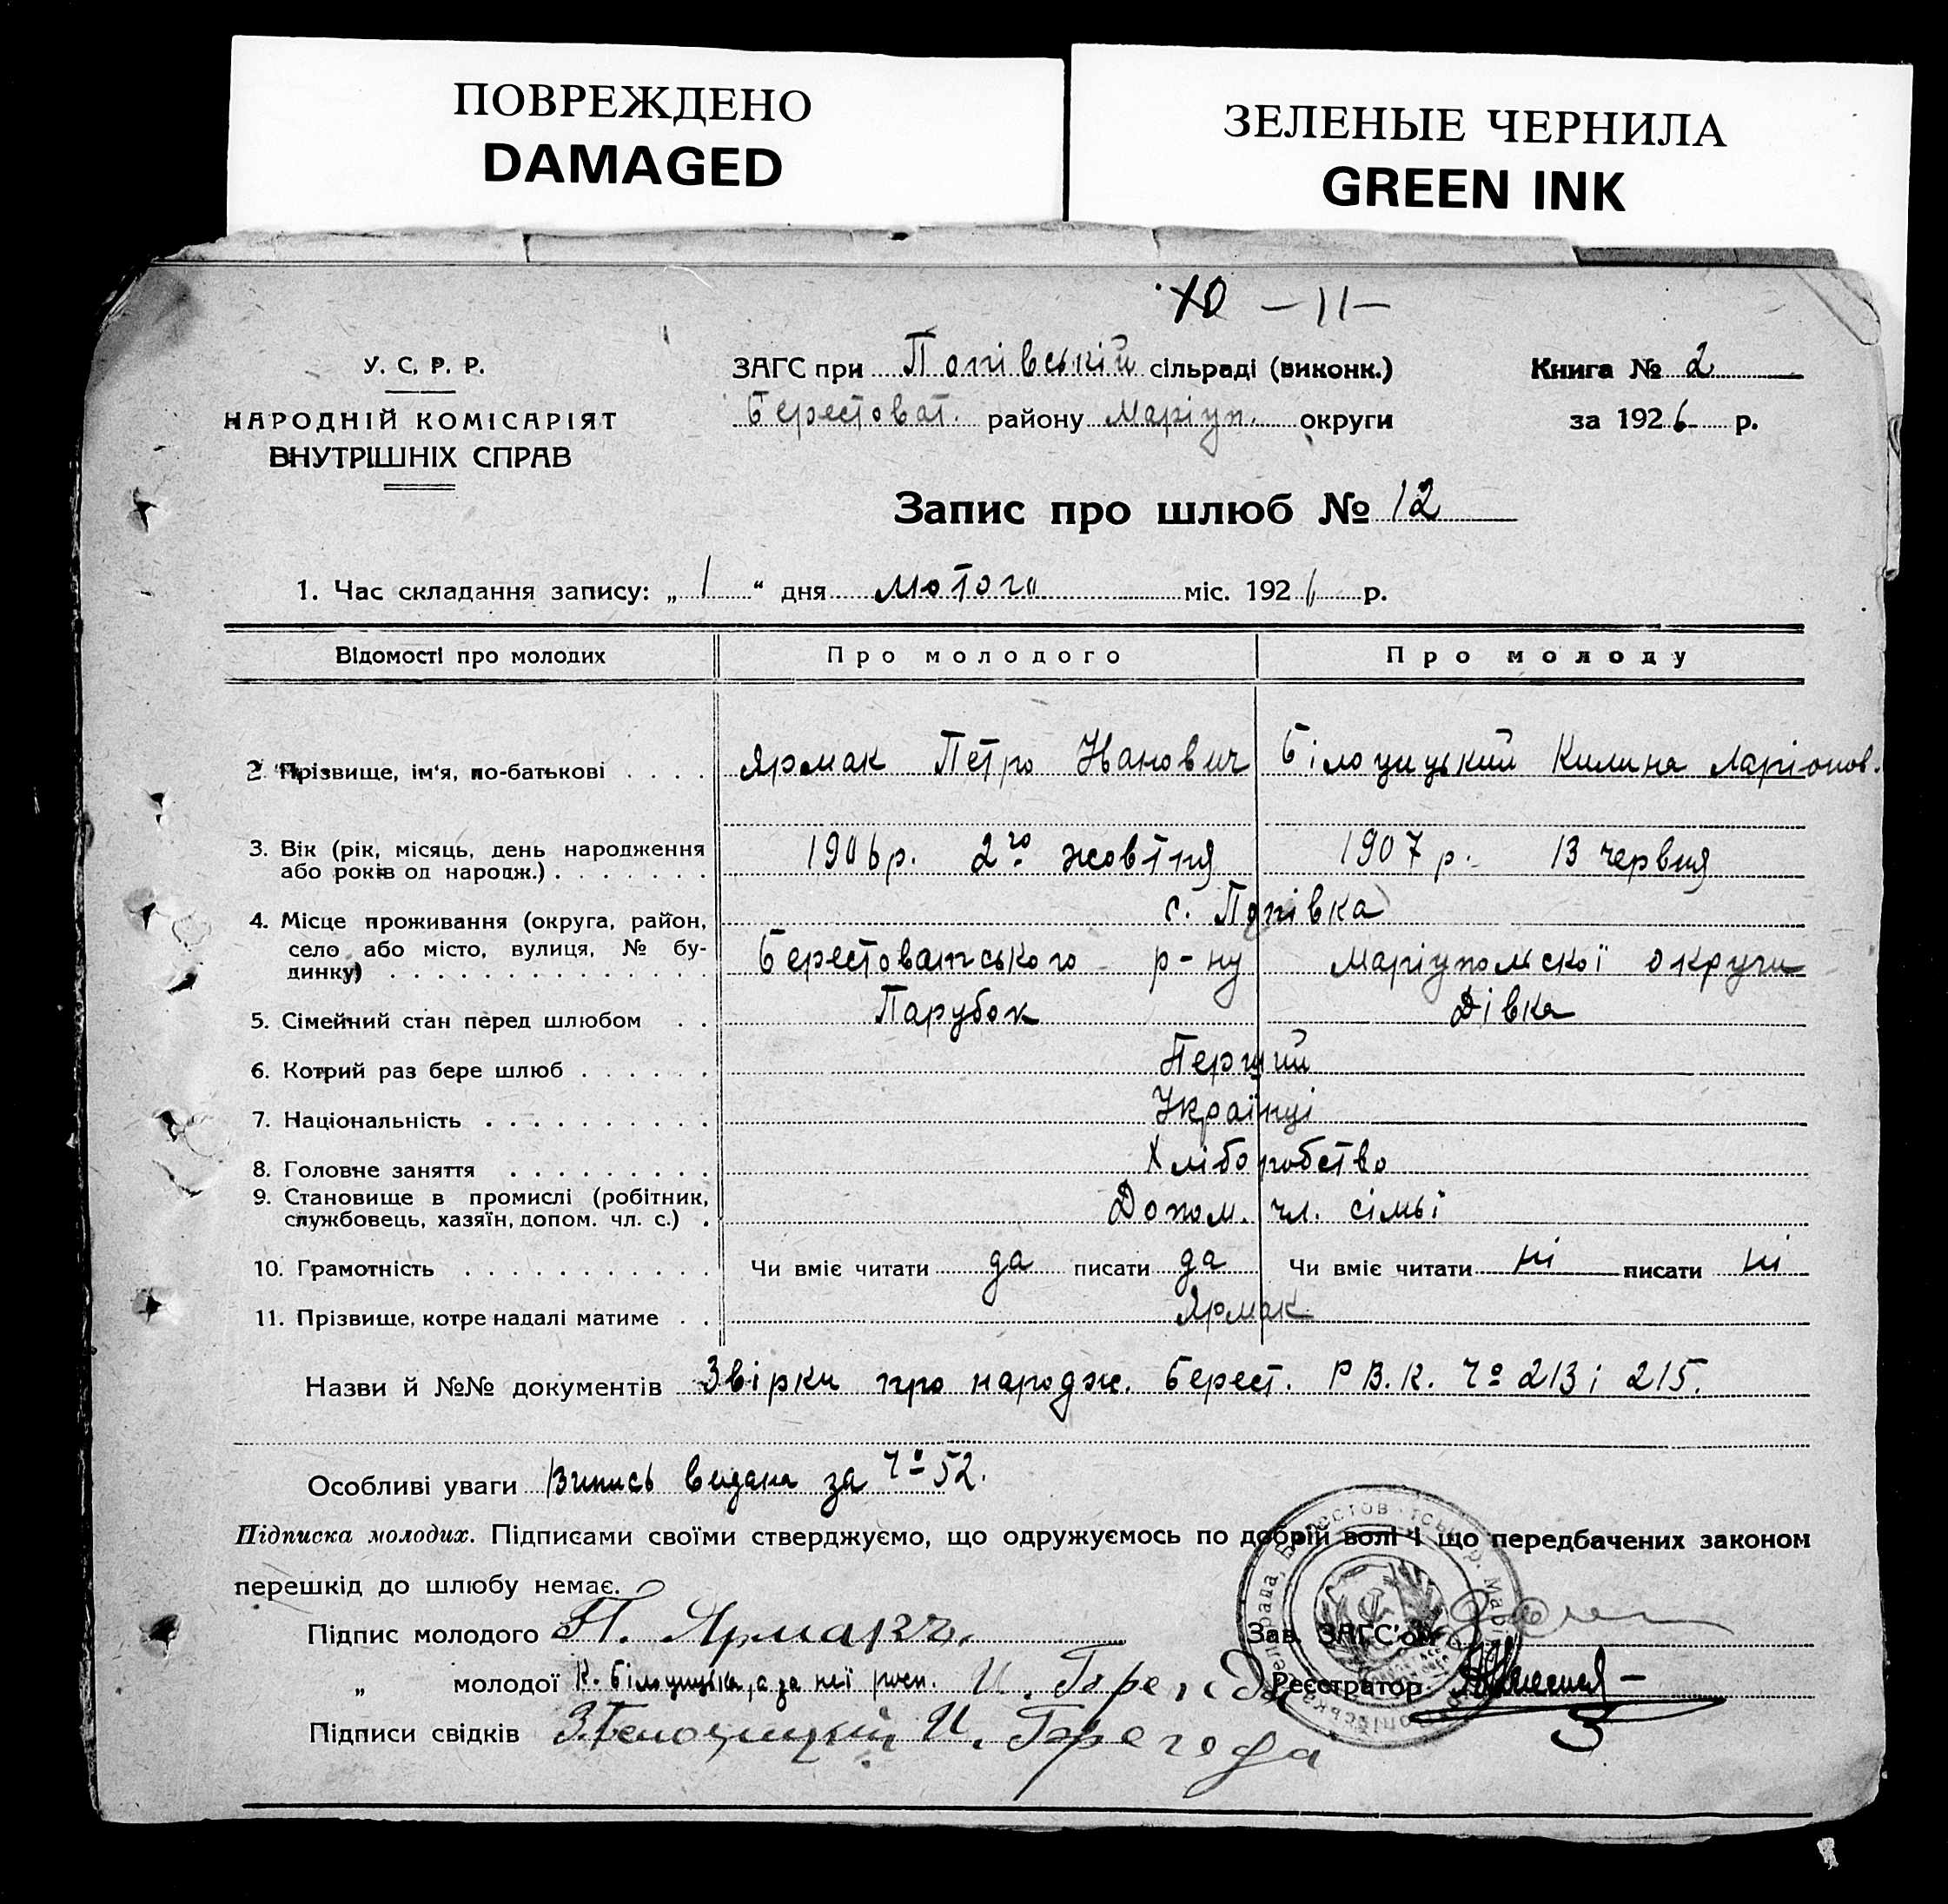 ПОВРЕЖДЕНО
DAMAGED
ЗЕЛЕНЫЕ ЧЕРНИЛА
GREEN INK
10 — 11 —
У. С. Р. Р.
НАРОДНІЙ КОМІСАРІЯТ
ВНУТРІШНІХ СПРАВ
ЗАГС при Попівській сільраді (виконк.)
Берестоват. району Маріуп. округи
Книга № 2
за 1926 р.
Запис про шлюб № 12
1. Час складання запису: „ 1 “ дня лютого міс. 1926 р.
Відомості про молодих Про молодого Про молоду
2. Прізвище, ім'я, по-батькові . . . . Ярмак Петро Иванович Білоцицький Килина Ларіонов.
3. Вік (рік, місяць, день народження
або років од народж.) . . . . . . . 1906 р. 2го жовтня 1907 р. 13 червня
4. Місце проживання (округа, район, с. Попівка
село або місто, вулиця, № бу-
динку) . . . . . . . . . . . . . . Берестоватського р-ну Маріупольскої округи
5. Сімейний стан перед шлюбом . . Парубок Дівка
6. Котрий раз бере шлюб . . . . . . Перший
7. Національність . . . . . . . . . . Українці
8. Головне заняття . . . . . . . . . Хліборобство
9. Становище в промислі (робітник,
службовець, хазяїн, допом. чл. с.) . Допом. чл. сімьї
10. Грамотність . . . . . . . . . . . Чи вміє читати да писати да Чи вміє читати ні писати ні
11. Прізвище, котре надалі матиме . . Ярмак
Назви й №№ документів Звірки про народж. Берест. Р.В.К. Чо 213 і 215.
Особливі уваги Випись видана за Чо 52.
Підписка молодих. Підписами своїми стверджуємо, що одружуємось по добрій волі і що передбачених законом
перешкід до шлюбу немає.
Підпис молодого П. Ярмак
Зав. ЗАГС'ом
„ молодої К. Білоцицька, а за неї росп. И.
Реєстратор
Підписи свідків И.